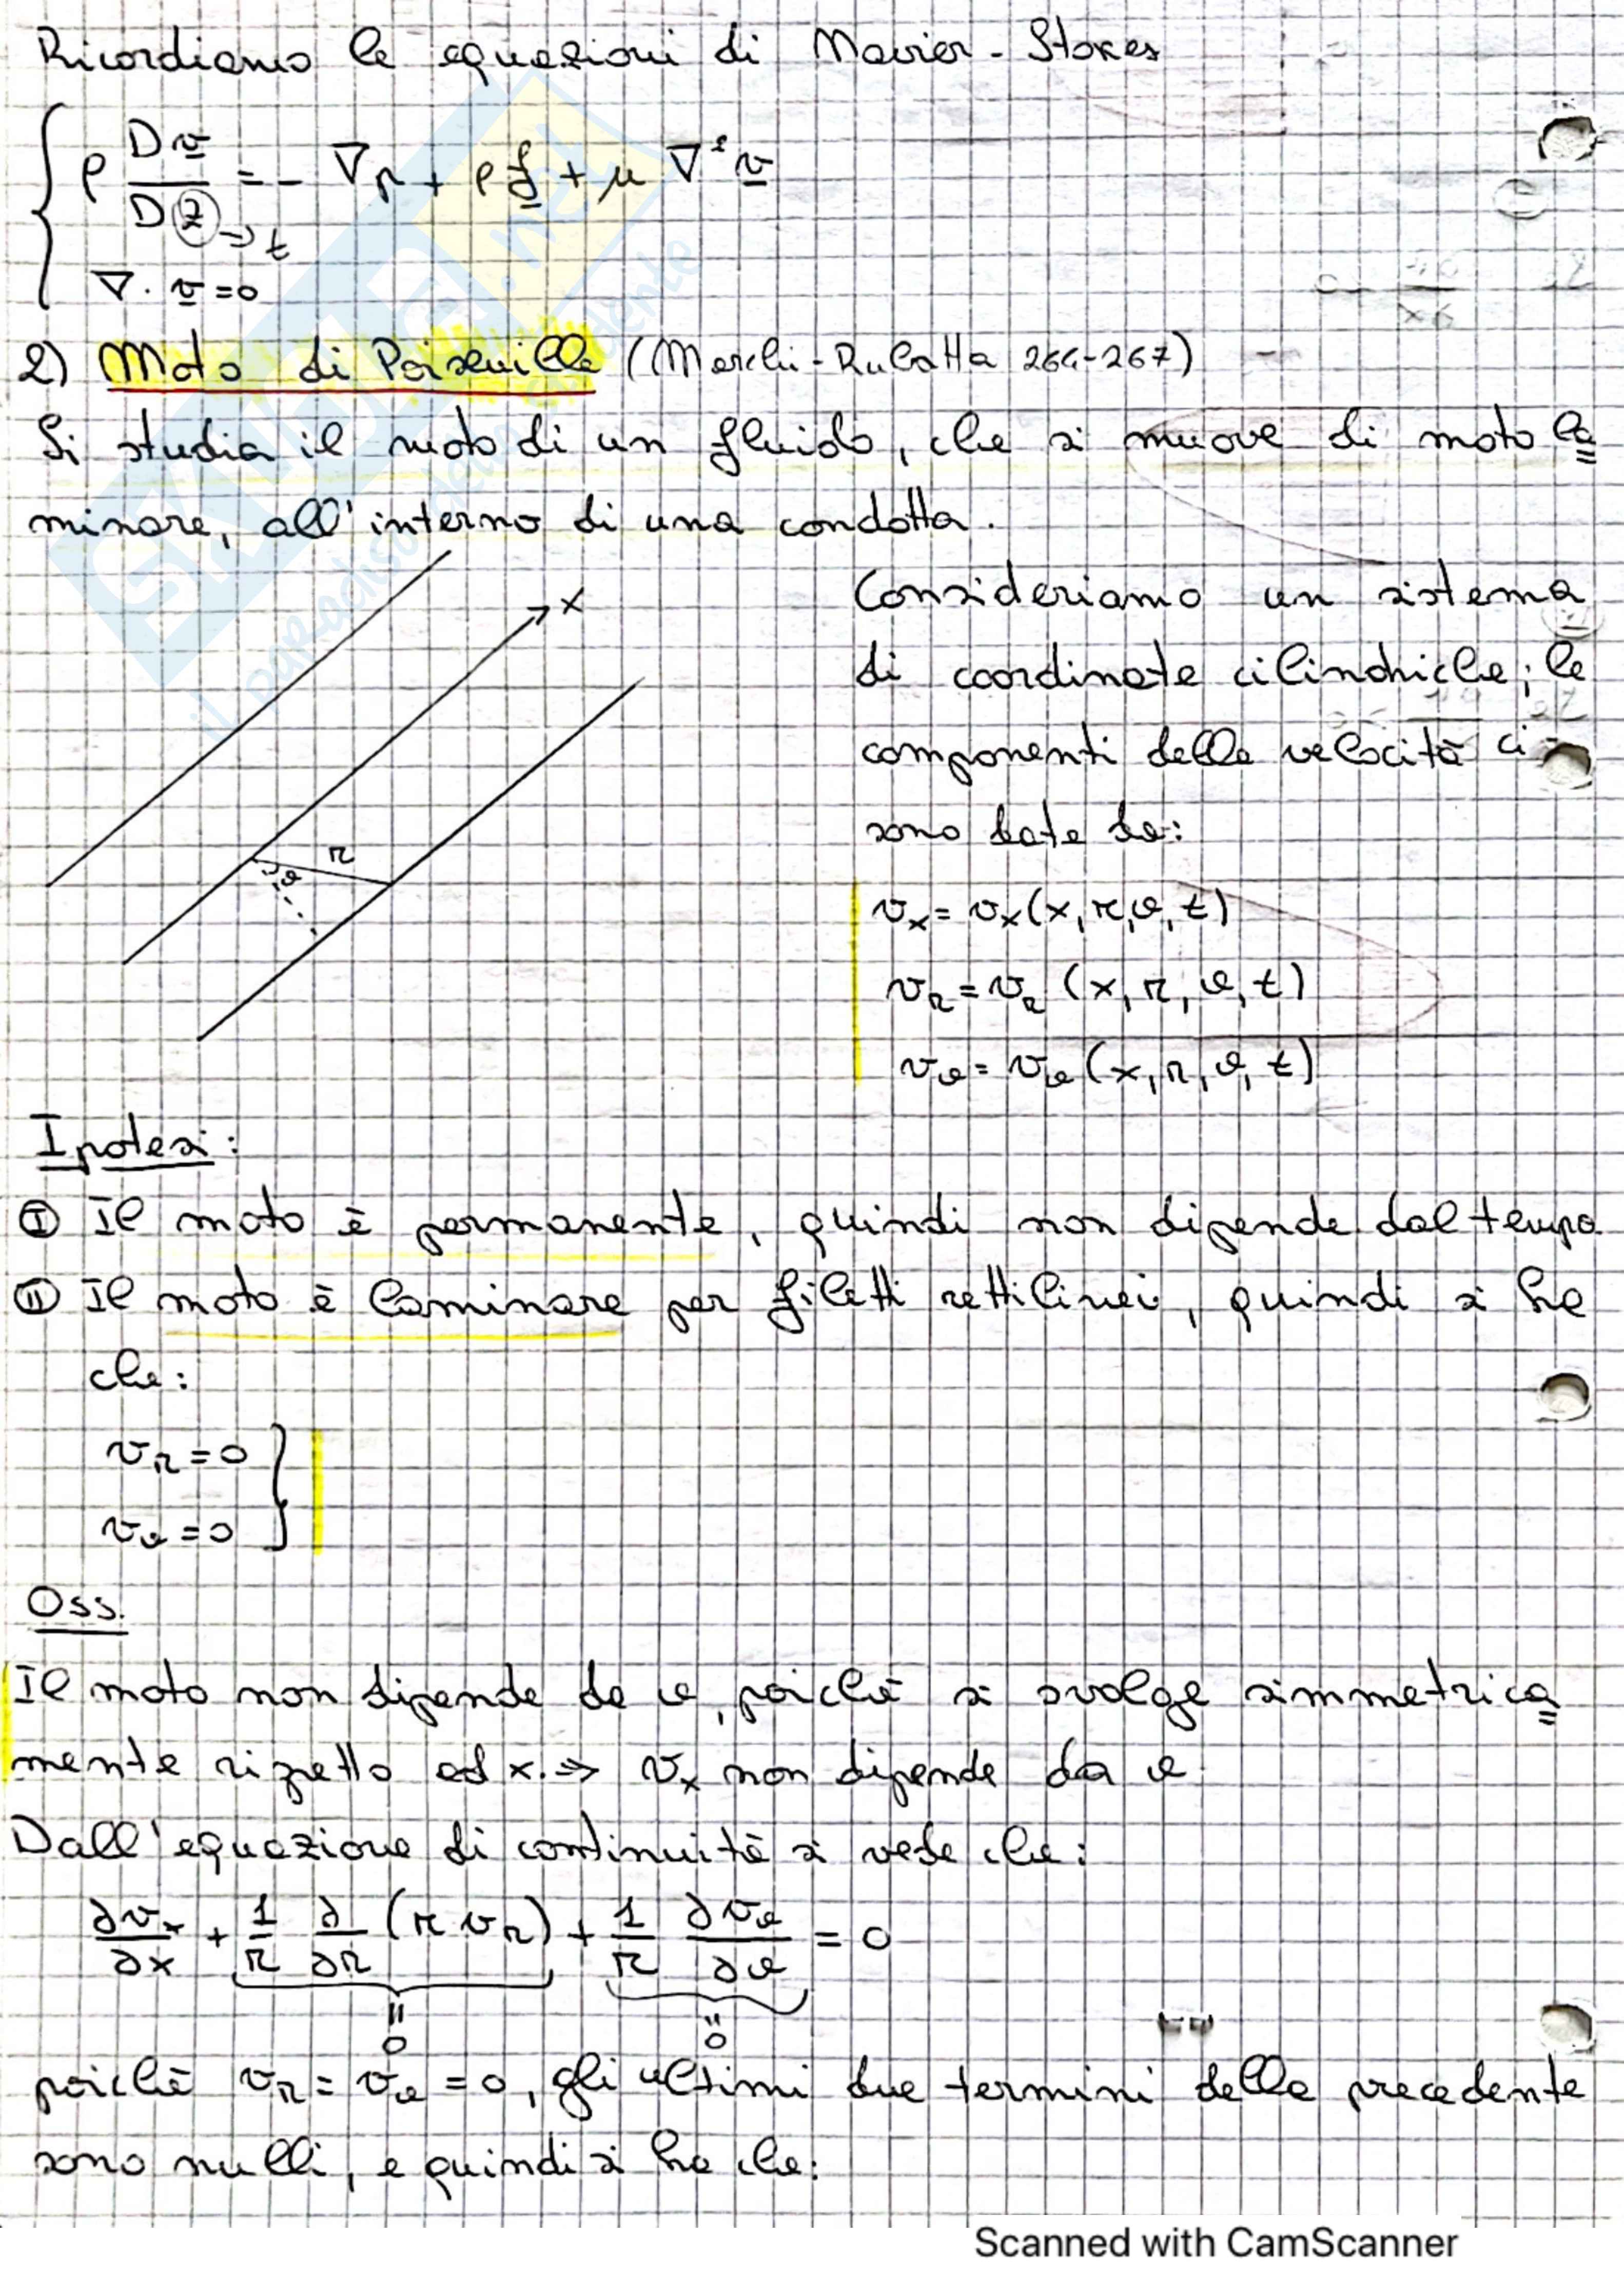 Ricordiamo le equazioni di Navier-Stokes
ρ Dv/D② = - ∇p + ρ f + μ ∇² v
→ t
∇ · v = 0
2) Moto di Poiseuille (Marchi-Rubatta 264-267)
Si studia il moto di un fluido, che si muove di moto la=
minare, all'interno di una condotta.
x
r
θ
Consideriamo un sistema
di coordinate cilindriche; le
componenti della velocità ci
sono date da:
v_x = v_x (x, r, θ, t)
v_r = v_r (x, r, θ, t)
v_θ = v_θ (x, r, θ, t)
Ipotesi:
Ⓘ Il moto è permanente, quindi non dipende dal tempo.
Ⓘ Il moto è laminare per filetti rettilinei, quindi si ha
che:
v_r = 0 }
v_θ = 0
Oss.
Il moto non dipende da θ, poiché si svolge simmetrica=
mente rispetto ad x. ⇒ v_x non dipende da θ.
Dall'equazione di continuità si vede che:
∂v_x/∂x + 1/r ∂/∂r (r v_r) + 1/r ∂v_θ/∂θ = 0
= 0 = 0
poiché v_r = v_θ = 0, gli ultimi due termini della precedente
sono nulli, e quindi si ha che:
SKUOLA.net
il paradiso dello studente
Scanned with CamScanner